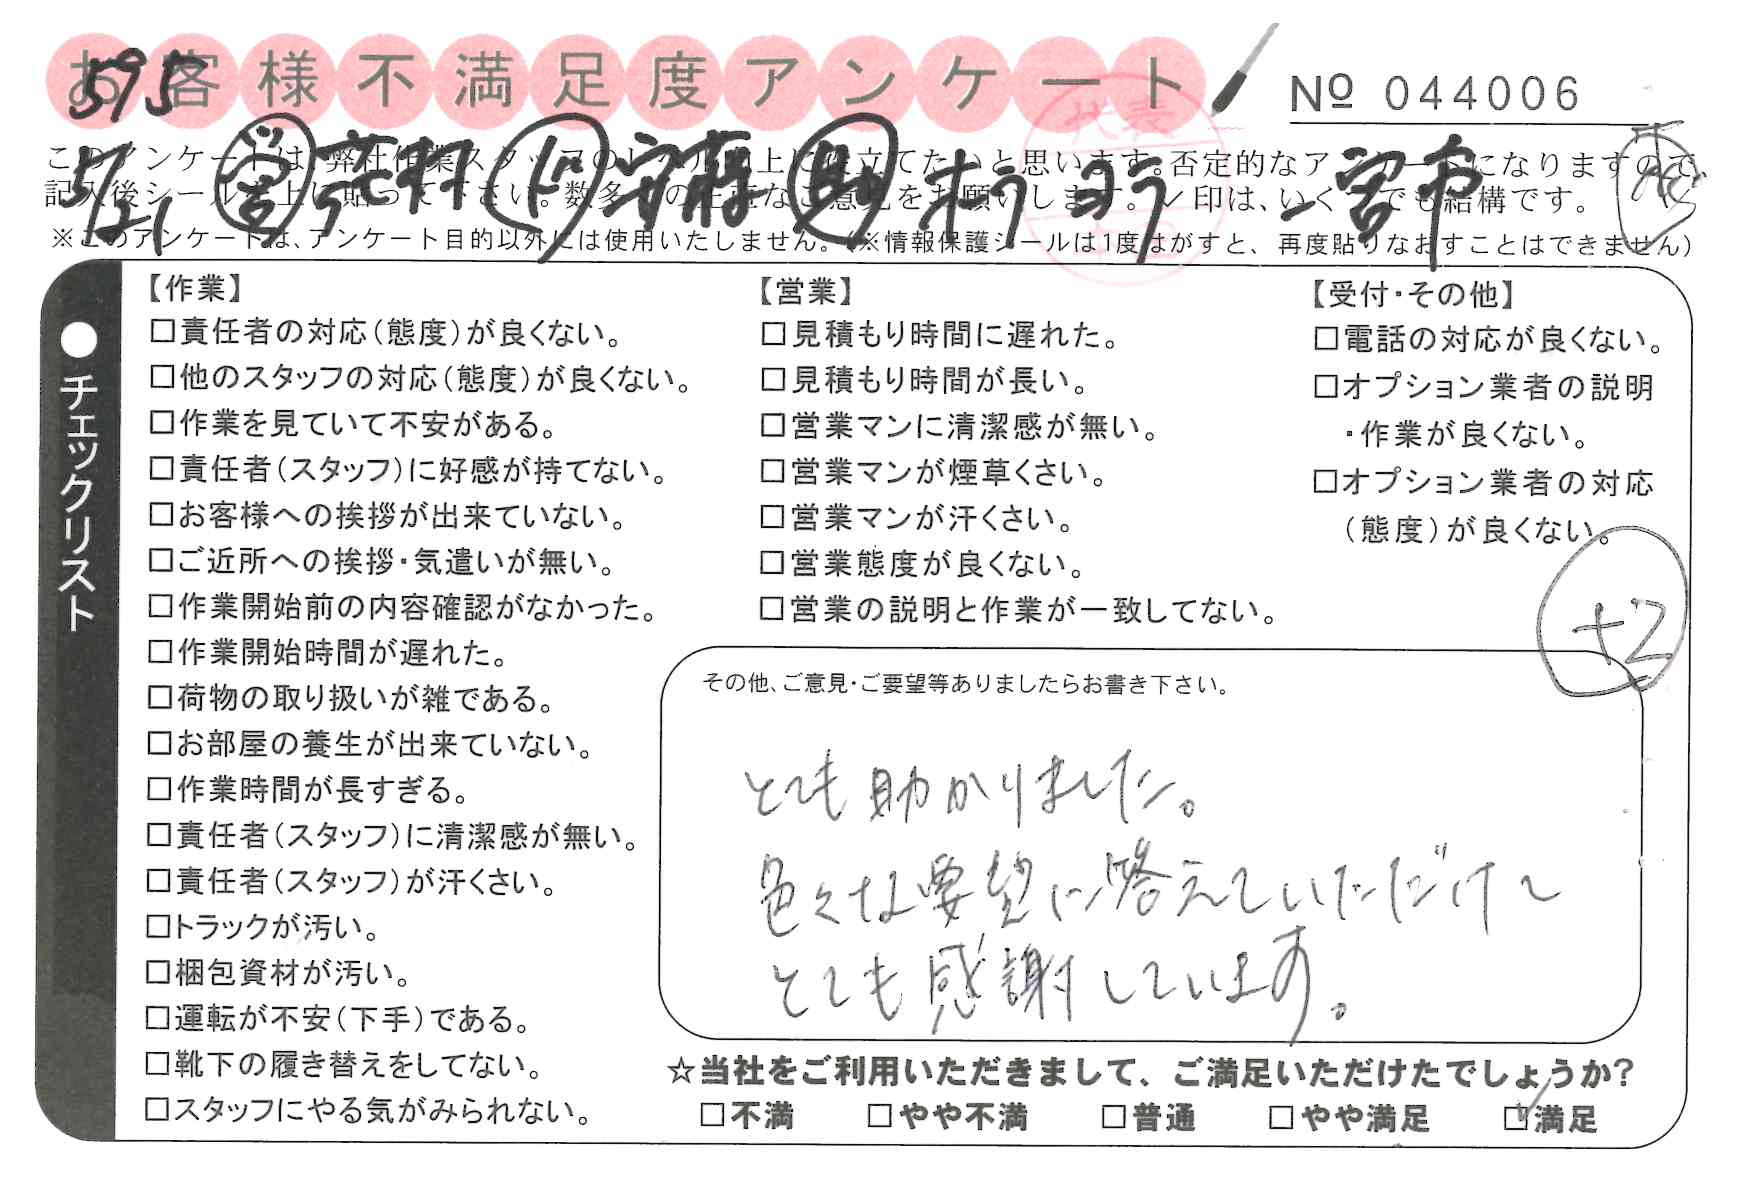 お客様不満足度アンケート
№ 044006
595
このアンケートは、弊社作業スタッフのレベル向上に役立てたいと思います。否定的なアンケートになりますので、
記入後シールを上に貼って下さい。数多くの正直なご意見をお願いします。✓印は、いくつでも結構です。
5/21 営 ド 安藤 助 一宮市
※このアンケートは、アンケート目的以外には使用いたしません。(※情報保護シールは1度はがすと、再度貼りなおすことはできません)
代表
●チェックリスト
【作業】
□責任者の対応(態度)が良くない。
□他のスタッフの対応(態度)が良くない。
□作業を見ていて不安がある。
□責任者(スタッフ)に好感が持てない。
□お客様への挨拶が出来ていない。
□ご近所への挨拶・気遣いが無い。
□作業開始前の内容確認がなかった。
□作業開始時間が遅れた。
□荷物の取り扱いが雑である。
□お部屋の養生が出来ていない。
□作業時間が長すぎる。
□責任者(スタッフ)に清潔感が無い。
□責任者(スタッフ)が汗くさい。
□トラックが汚い。
□梱包資材が汚い。
□運転が不安(下手)である。
□靴下の履き替えをしてない。
□スタッフにやる気がみられない。
【営業】
□見積もり時間に遅れた。
□見積もり時間が長い。
□営業マンに清潔感が無い。
□営業マンが煙草くさい。
□営業マンが汗くさい。
□営業態度が良くない。
□営業の説明と作業が一致してない。
【受付・その他】
□電話の対応が良くない。
□オプション業者の説明
・作業が良くない。
□オプション業者の対応
(態度)が良くない。
+2
その他、ご意見・ご要望等ありましたらお書き下さい。
とても助かりました。
色々な要望に答えていただけて
とても感謝しています。
☆当社をご利用いただきまして、ご満足いただけたでしょうか?
□不満 □やや不満 □普通 □やや満足 ☑満足